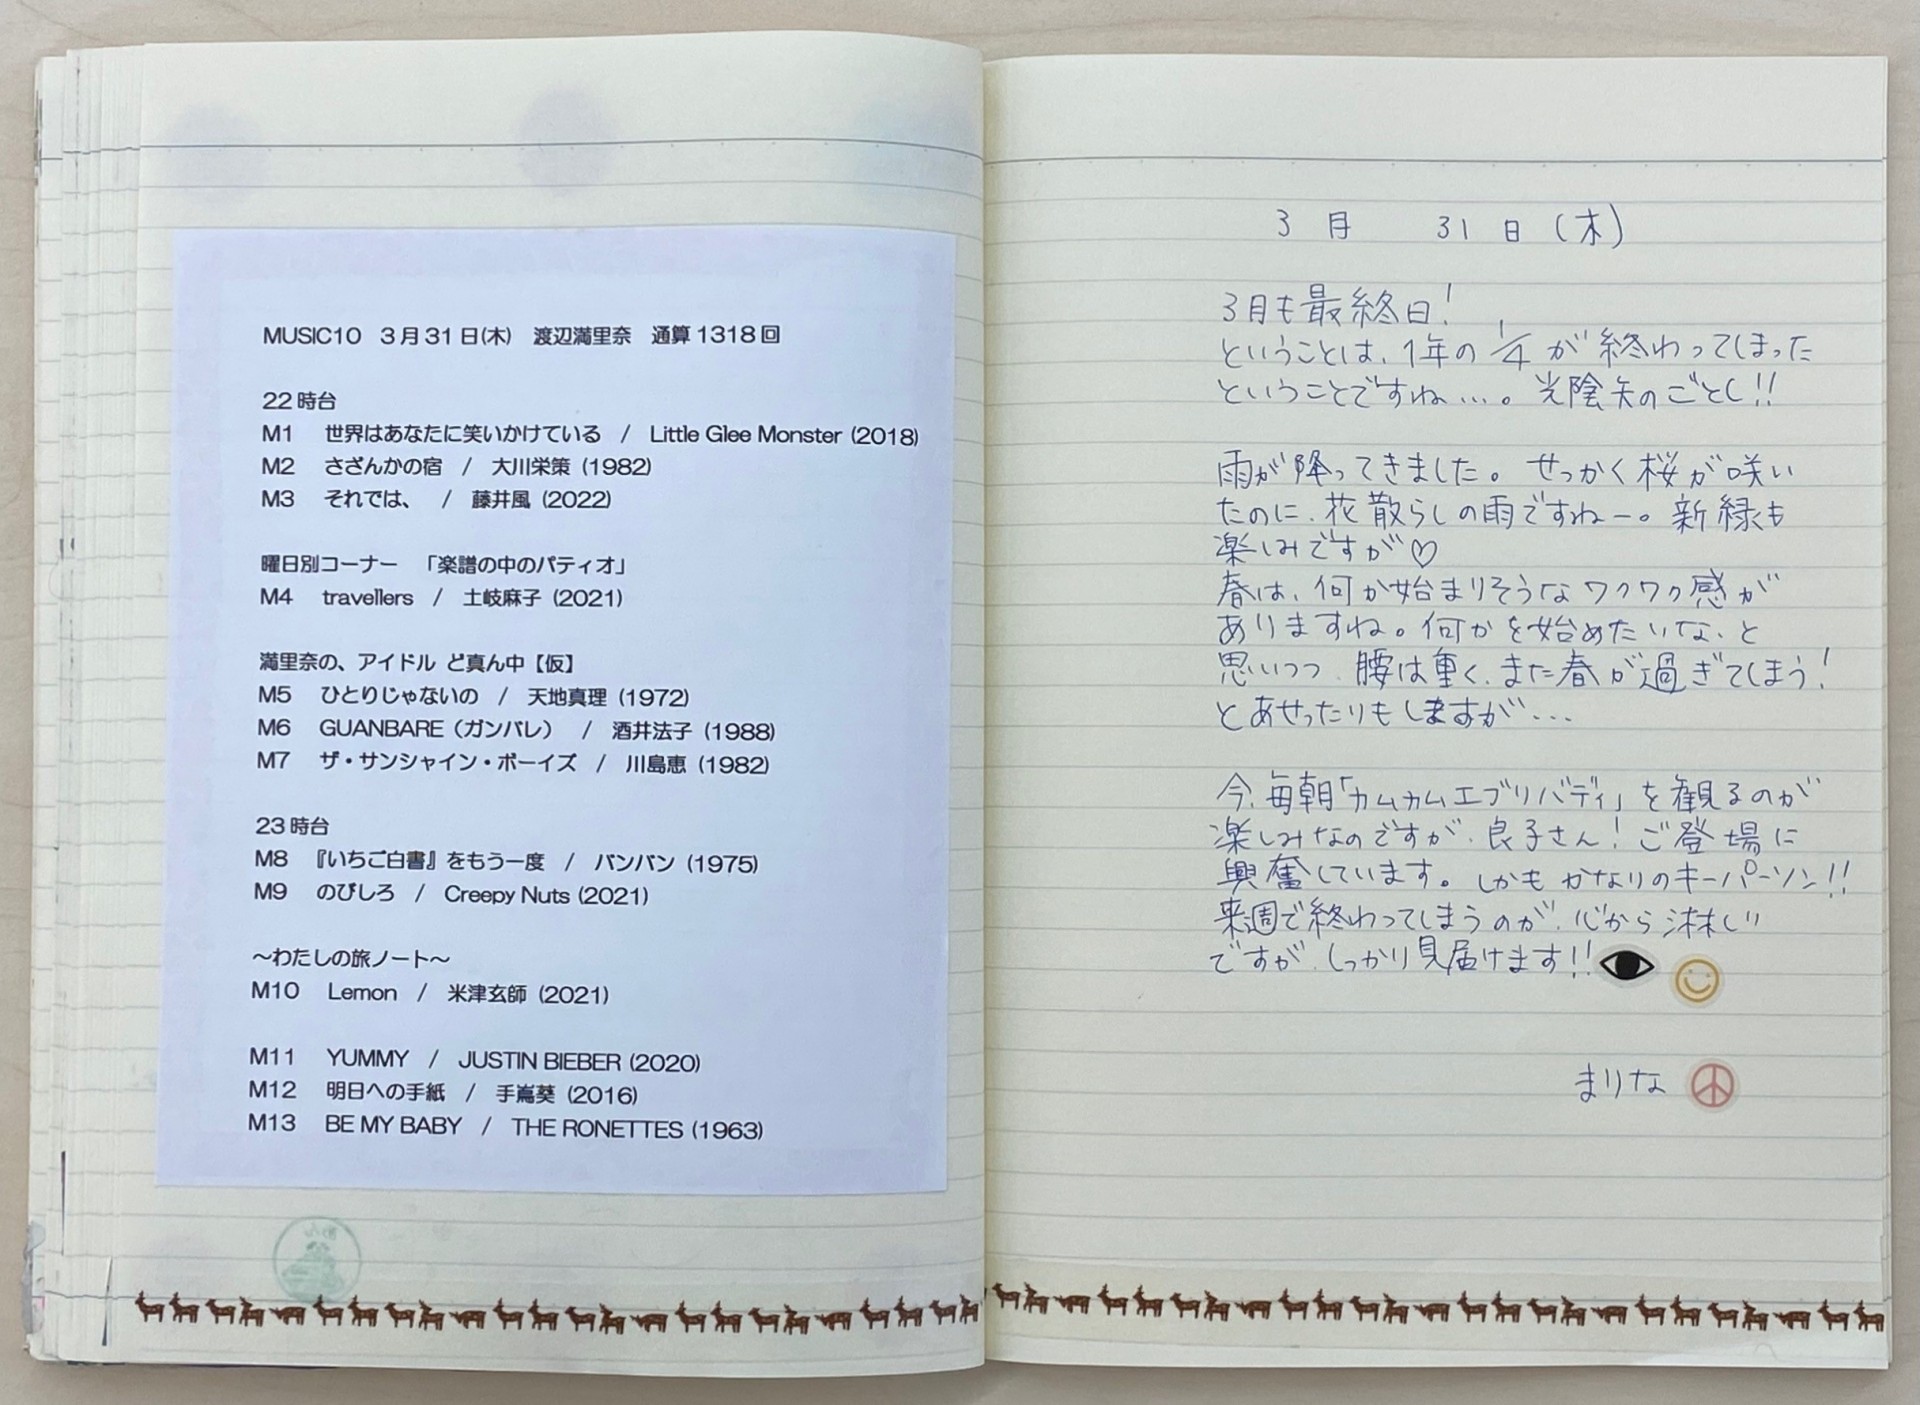 MUSIC10 3月31日(木) 渡辺満里奈 通算1318回
22時台
M1 世界はあなたに笑いかけている / Little Glee Monster (2018)
M2 さざんかの宿 / 大川栄策 (1982)
M3 それでは、 / 藤井風 (2022)
曜日別コーナー 「楽譜の中のパティオ」
M4 travellers / 土岐麻子 (2021)
満里奈の、アイドル ど真ん中【仮】
M5 ひとりじゃないの / 天地真理 (1972)
M6 GUANBARE（ガンバレ） / 酒井法子 (1988)
M7 ザ・サンシャイン・ボーイズ / 川島恵 (1982)
23時台
M8 『いちご白書』をもう一度 / バンバン (1975)
M9 のびしろ / Creepy Nuts (2021)
～わたしの旅ノート～
M10 Lemon / 米津玄師 (2021)
M11 YUMMY / JUSTIN BIEBER (2020)
M12 明日への手紙 / 手嶌葵 (2016)
M13 BE MY BABY / THE RONETTES (1963)
3月 31日(木)
3月も最終日!
ということは、1年の1/4が終わってしまった
ということですね…。光陰矢のごとし!!
雨が降ってきました。せっかく桜が咲い
たのに、花散らしの雨ですねー。新緑も
楽しみですが♡
春は、何か始まりそうなワクワク感が
ありますね。何かを始めたいな、と
思いつつ、腰は重く、また春が過ぎてしまう!
とあせったりもしますが…
今、毎朝「カムカムエブリバディ」を観るのが
楽しみなのですが、良子さん!ご登場に
興奮しています。しかもかなりのキーパーソン!!
来週で終わってしまうのが、心から淋しい
ですが、しっかり見届けます!!
まりな